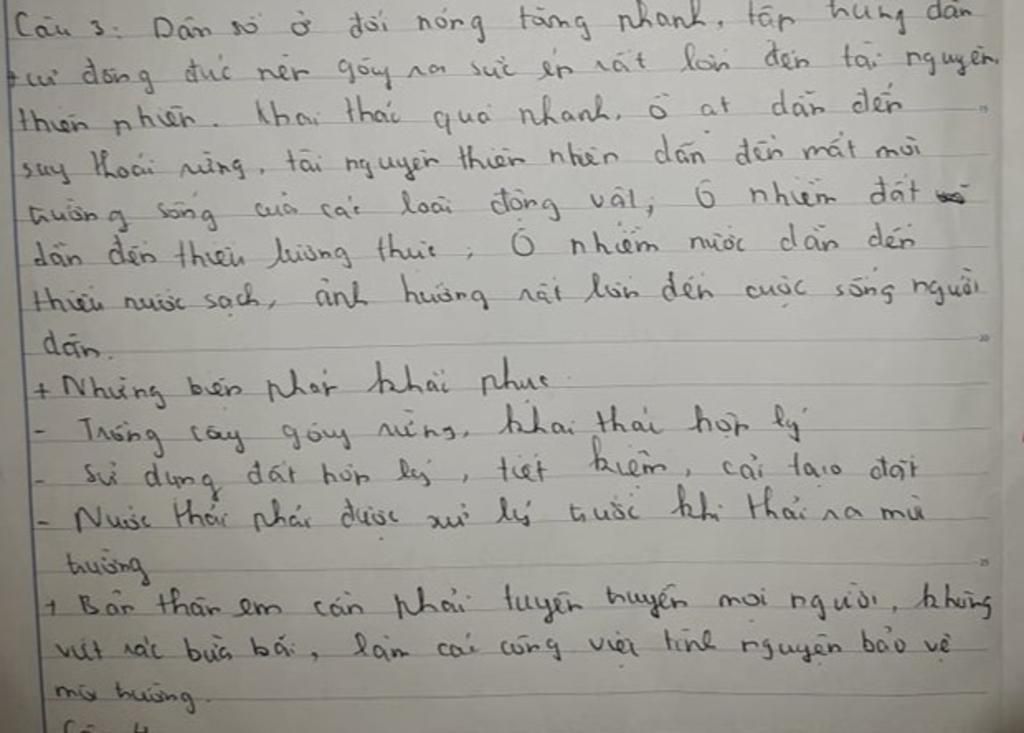 Câu 3: Dân số ở đới nóng tăng nhanh, tập trung dân
cư đông đúc nên gây ra sức ép rất lớn đến tài nguyên
thiên nhiên. Khai thác quá nhanh, ồ ạt dẫn đến
suy thoái rừng, tài nguyên thiên nhiên dẫn đến mất môi
trường sống của các loài động vật; Ô nhiễm đất
dẫn đến thiếu lương thực; Ô nhiễm nước dẫn đến
thiếu nước sạch, ảnh hưởng rất lớn đến cuộc sống người
dân.
+ Những biện pháp khắc phục
- Trồng cây gây rừng, khai thác hợp lý
- Sử dụng đất hợp lý, tiết kiệm, cải tạo đất
- Nước thải phải được xử lý trước khi thải ra môi
trường
+ Bản thân em cần phải tuyên truyền mọi người, không
vứt rác bừa bãi, làm các công việc tình nguyện bảo vệ
môi trường.